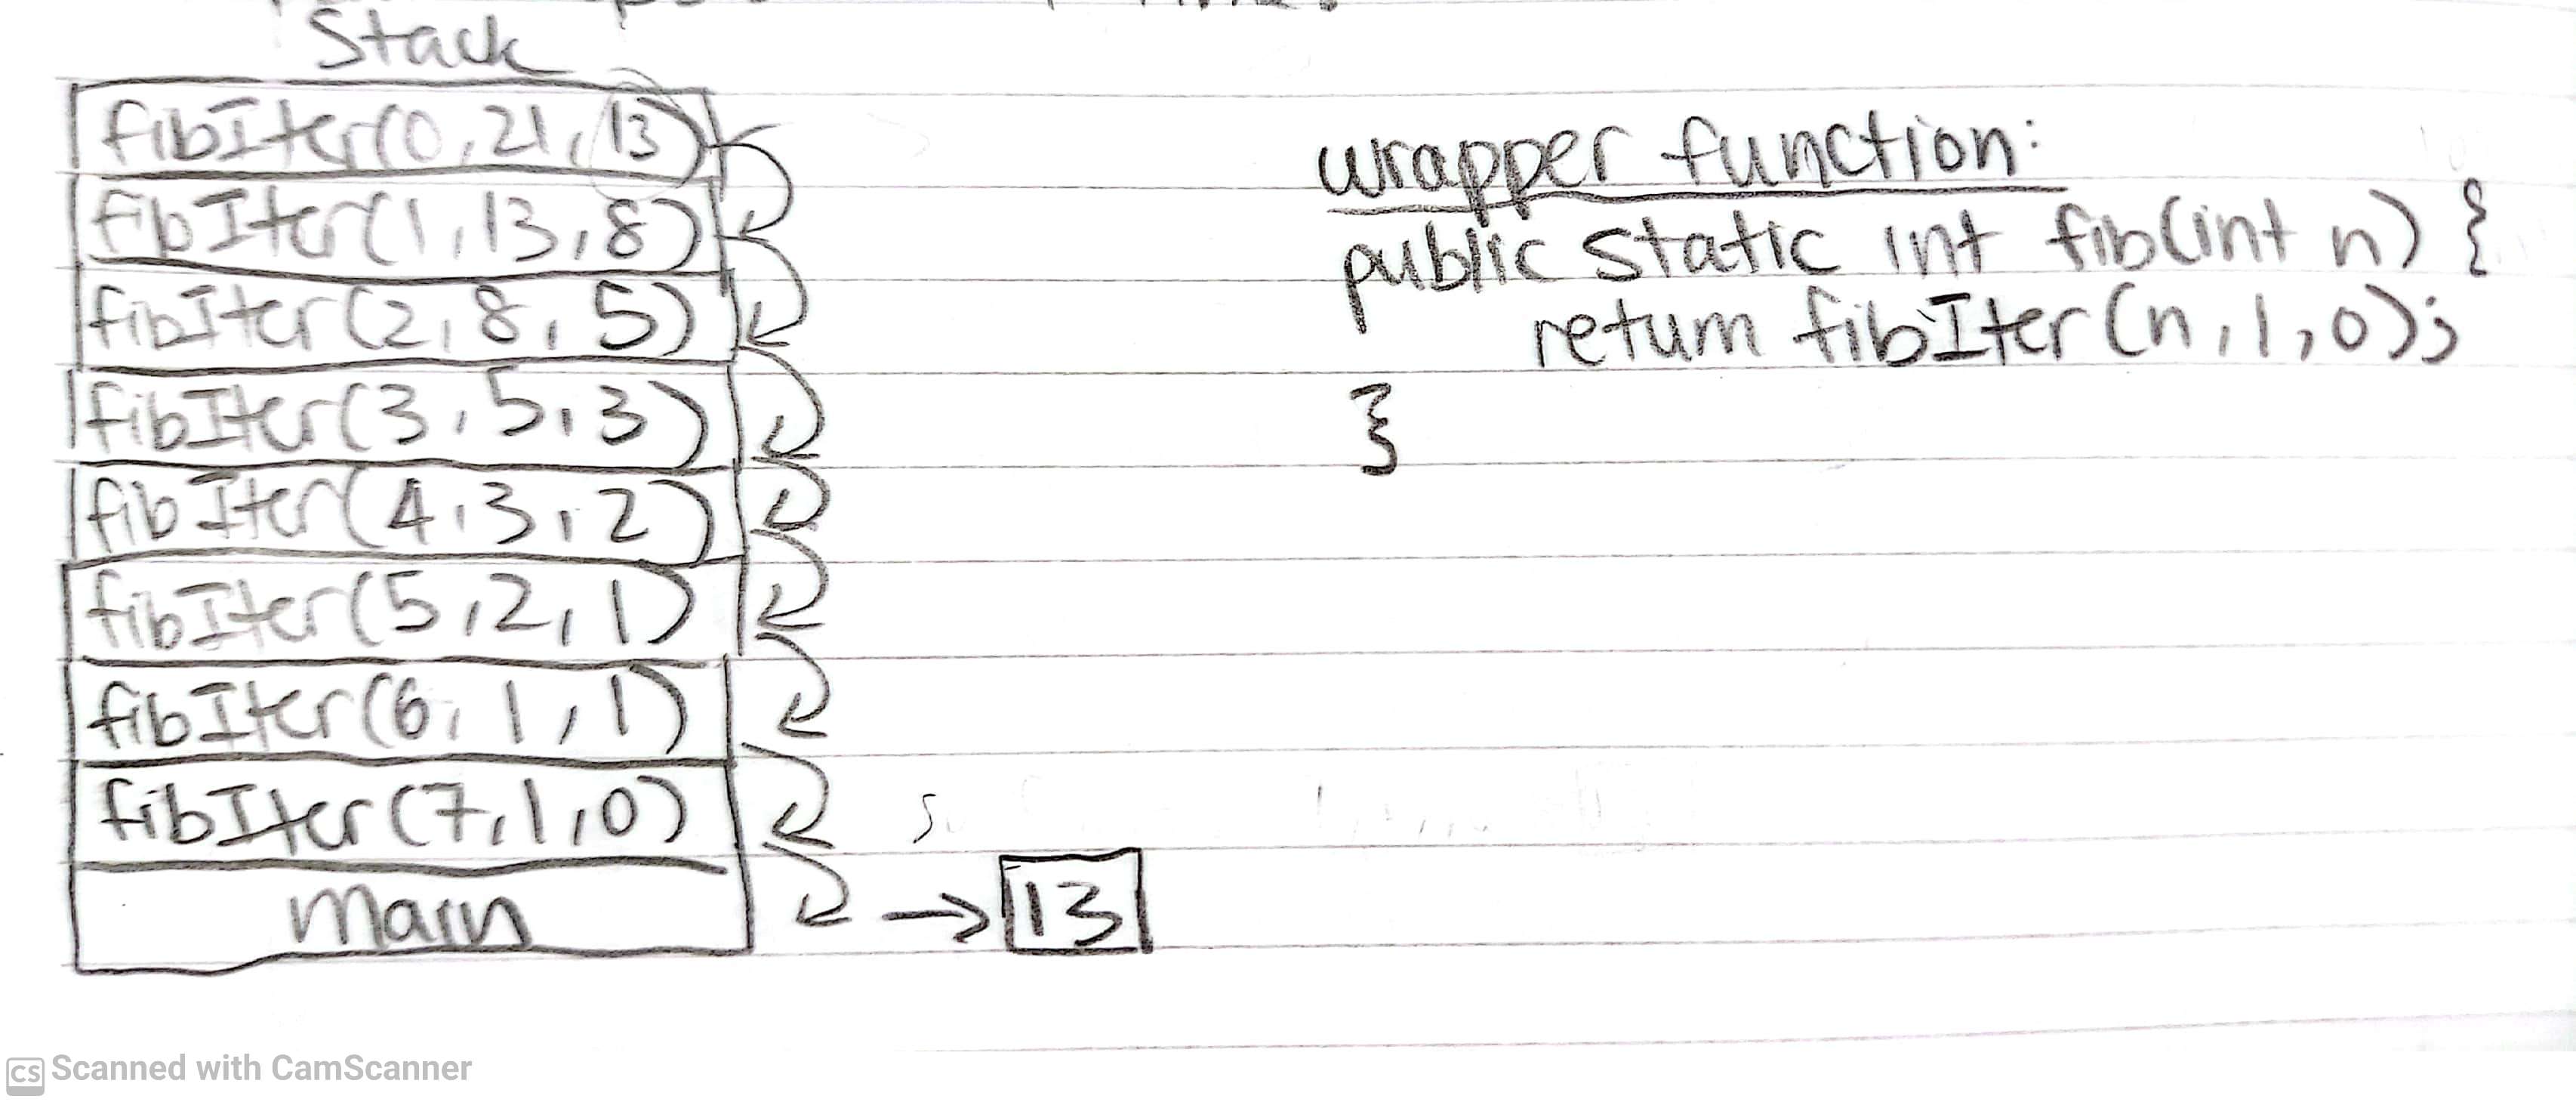 Stack
fibIter(0,21,13)
fibIter(1,13,8)
fibIter(2,8,5)
fibIter(3,5,3)
fibIter(4,3,2)
fibIter(5,2,1)
fibIter(6,1,1)
fibIter(7,1,0)
main
→ 13
wrapper function:
public static int fib(int n) {
return fibIter(n,1,0);
}
CS Scanned with CamScanner